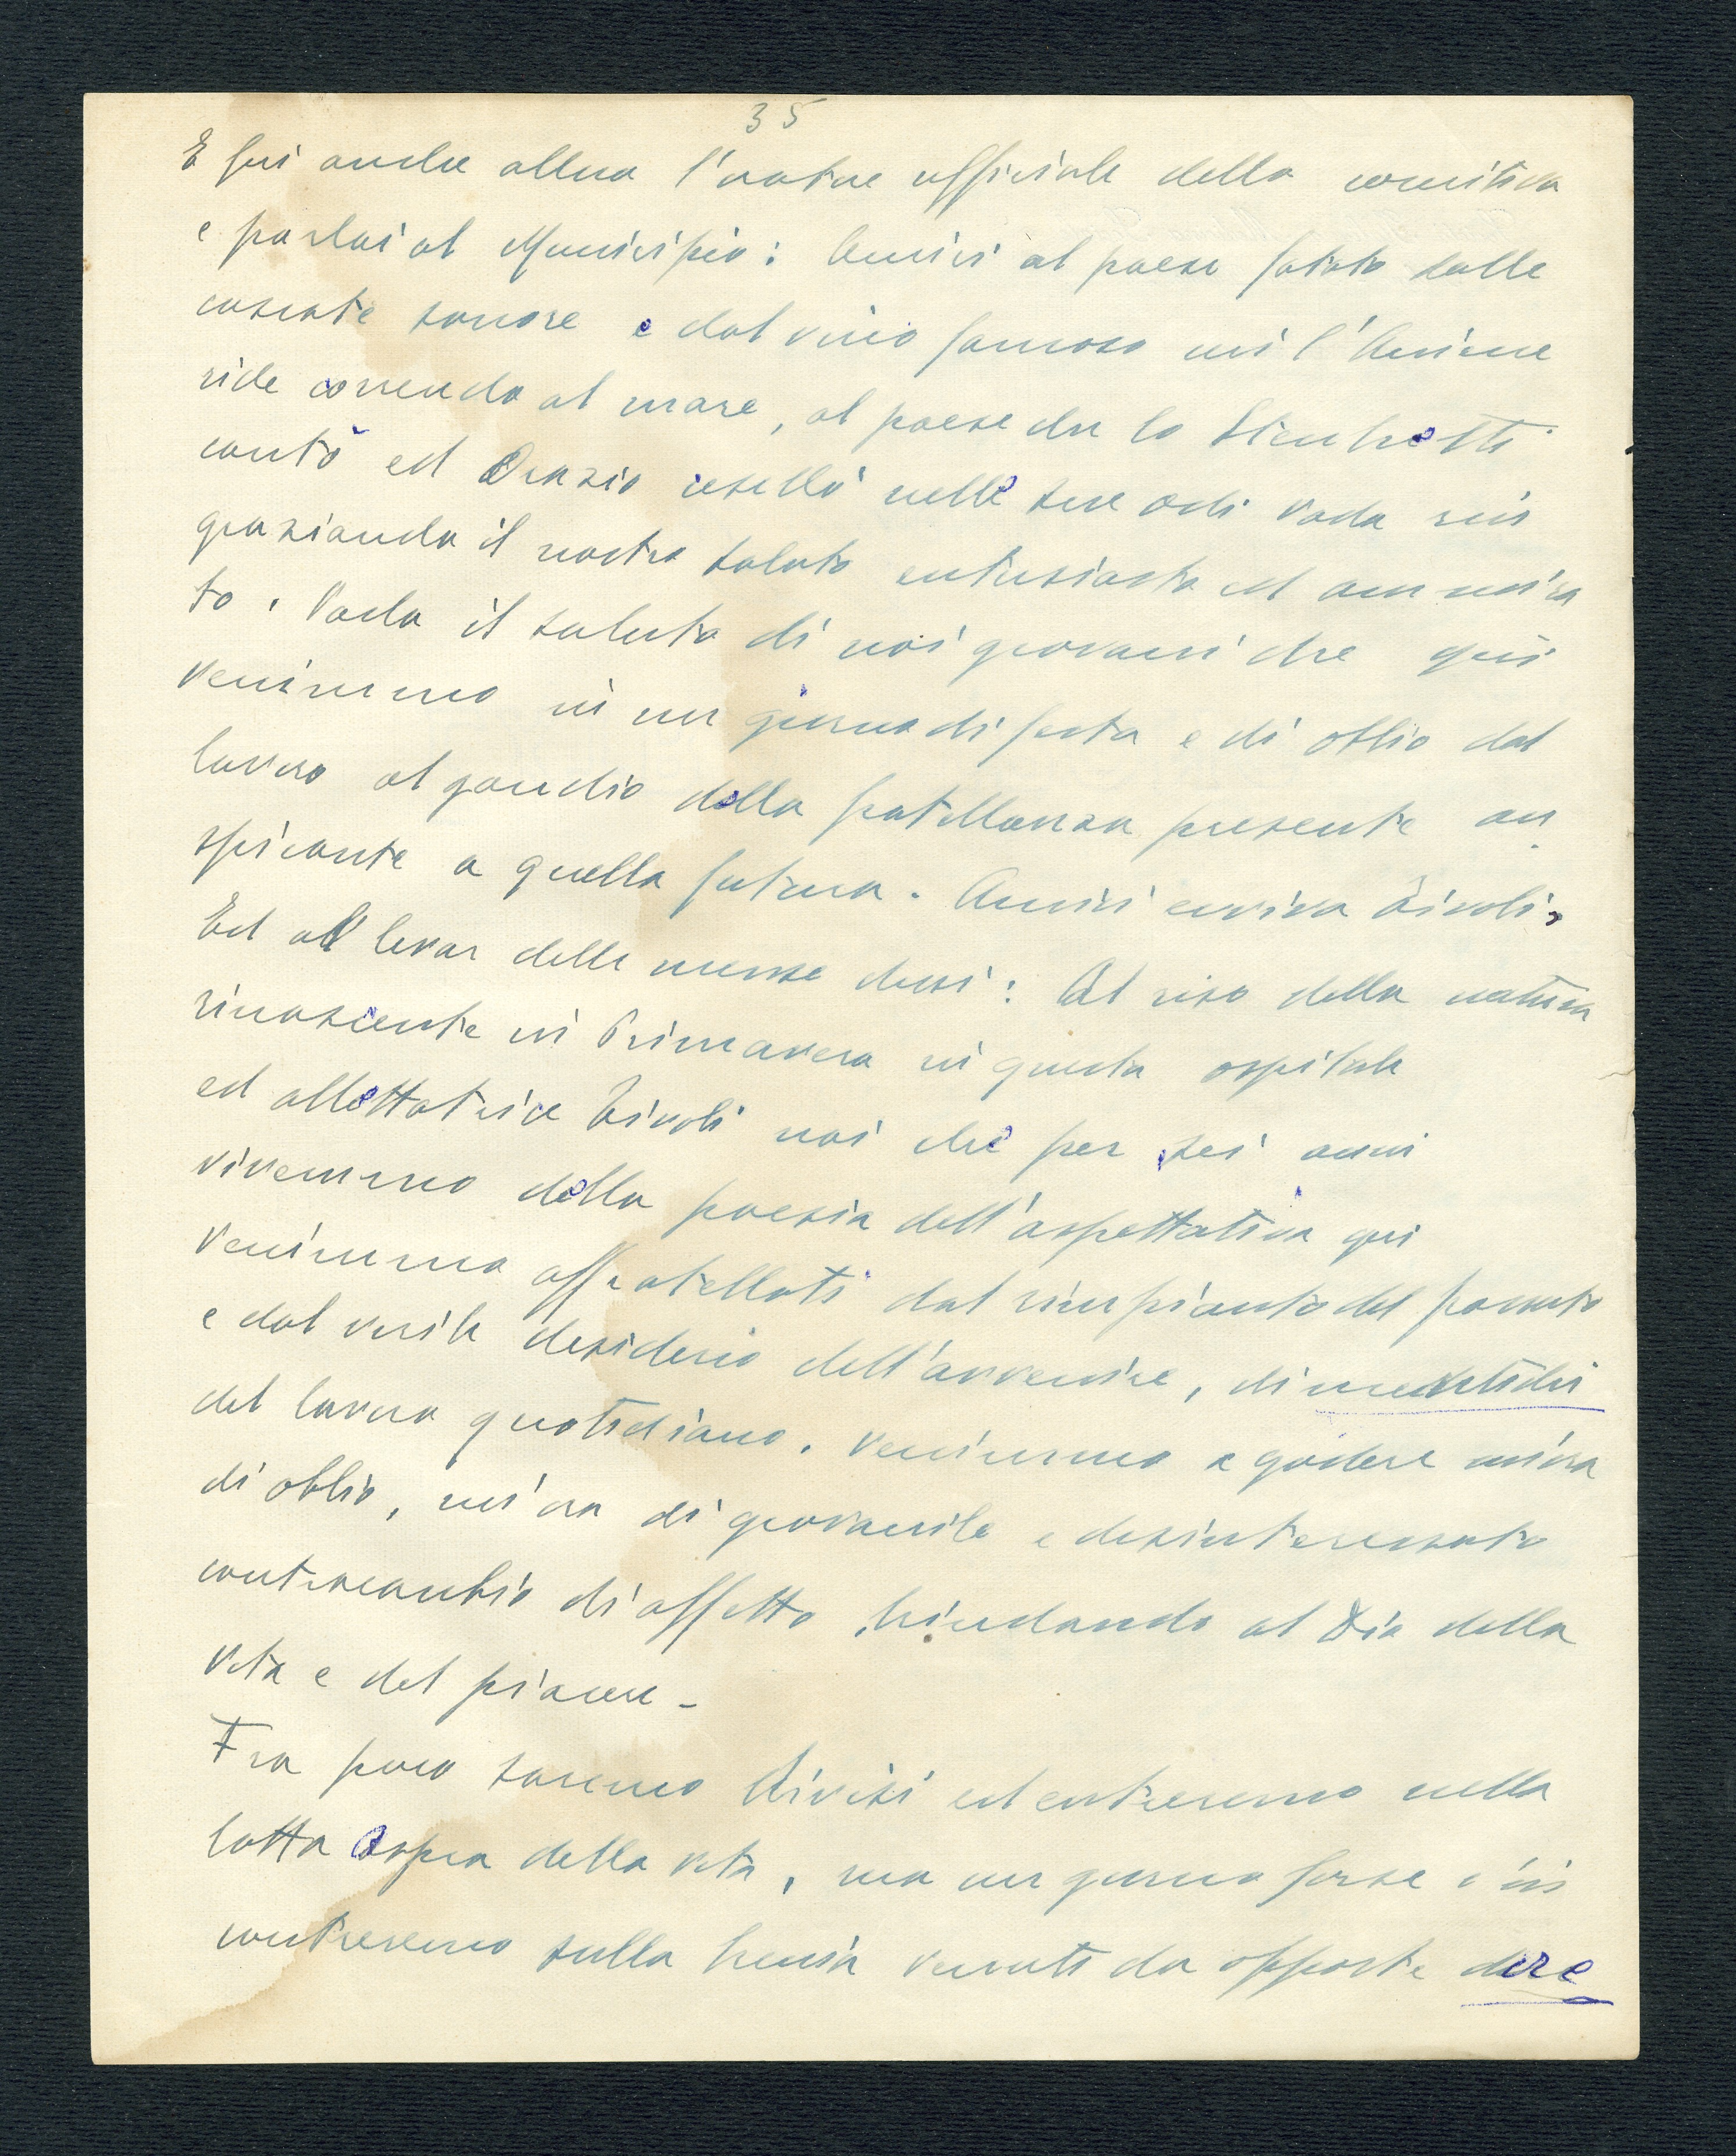 35
E fui anche allora l'oratore ufficiale della comitiva
e parlai al Municipio: Amici al paese fatato dalle
cascate sonore e dal vino famoso cui l'Aniene
ride correndo al mare, al paese che lo Stecchetti
cantò ed Orazio cesellò nelle sue odi vada rin
graziando il nostro saluto entusiasta ed ammira
to. Vada il saluto di noi giovani che qui
venimmo in un giorno di festa e di oblio dal
lavoro al gaudio della fratellanza presente au
spicante a quella futura. Amici evviva Tivoli,
Ed al levar delle mense dissi: Al riso della natura
rinascente in Primavera in questa ospitale
ed allettatrice Tivoli noi che per sei anni
vivemmo della poesia dell'aspettativa qui
venimmo affratellati dal rimpianto del passato
e dal virile desiderio dell'avvenire, dimentichi
del lavoro quotidiano. Venimmo a godere un'ora
di oblio, un'ora di giovanile e desinteressato
contracambio di affetto, brindando al Dio della
vita e del piacere -
Fra poco saremo divisi ed entreremo nella
lotta aspra della vita, ma un giorno forse c'in
contreremo sulla breccia venuti da opposte